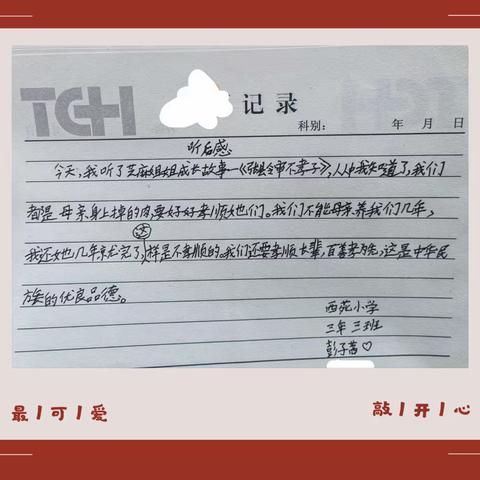 TCH
记录
科别： 年 月 日
听后感
今天，我听了芝麻姐姐成长故事—《张县令审不孝子》，从中我知道了，我们
都是母亲身上掉的肉，要好好孝顺她们。我们不能母亲养我们几年，
我还她几年就完了，这样是不孝顺的。我们还要孝顺长辈，百善孝为先，这是中华民
族的优良品德。
西苑小学
三年三班
彭子茜♡
最 | 可 | 爱
敲 | 开 | 心